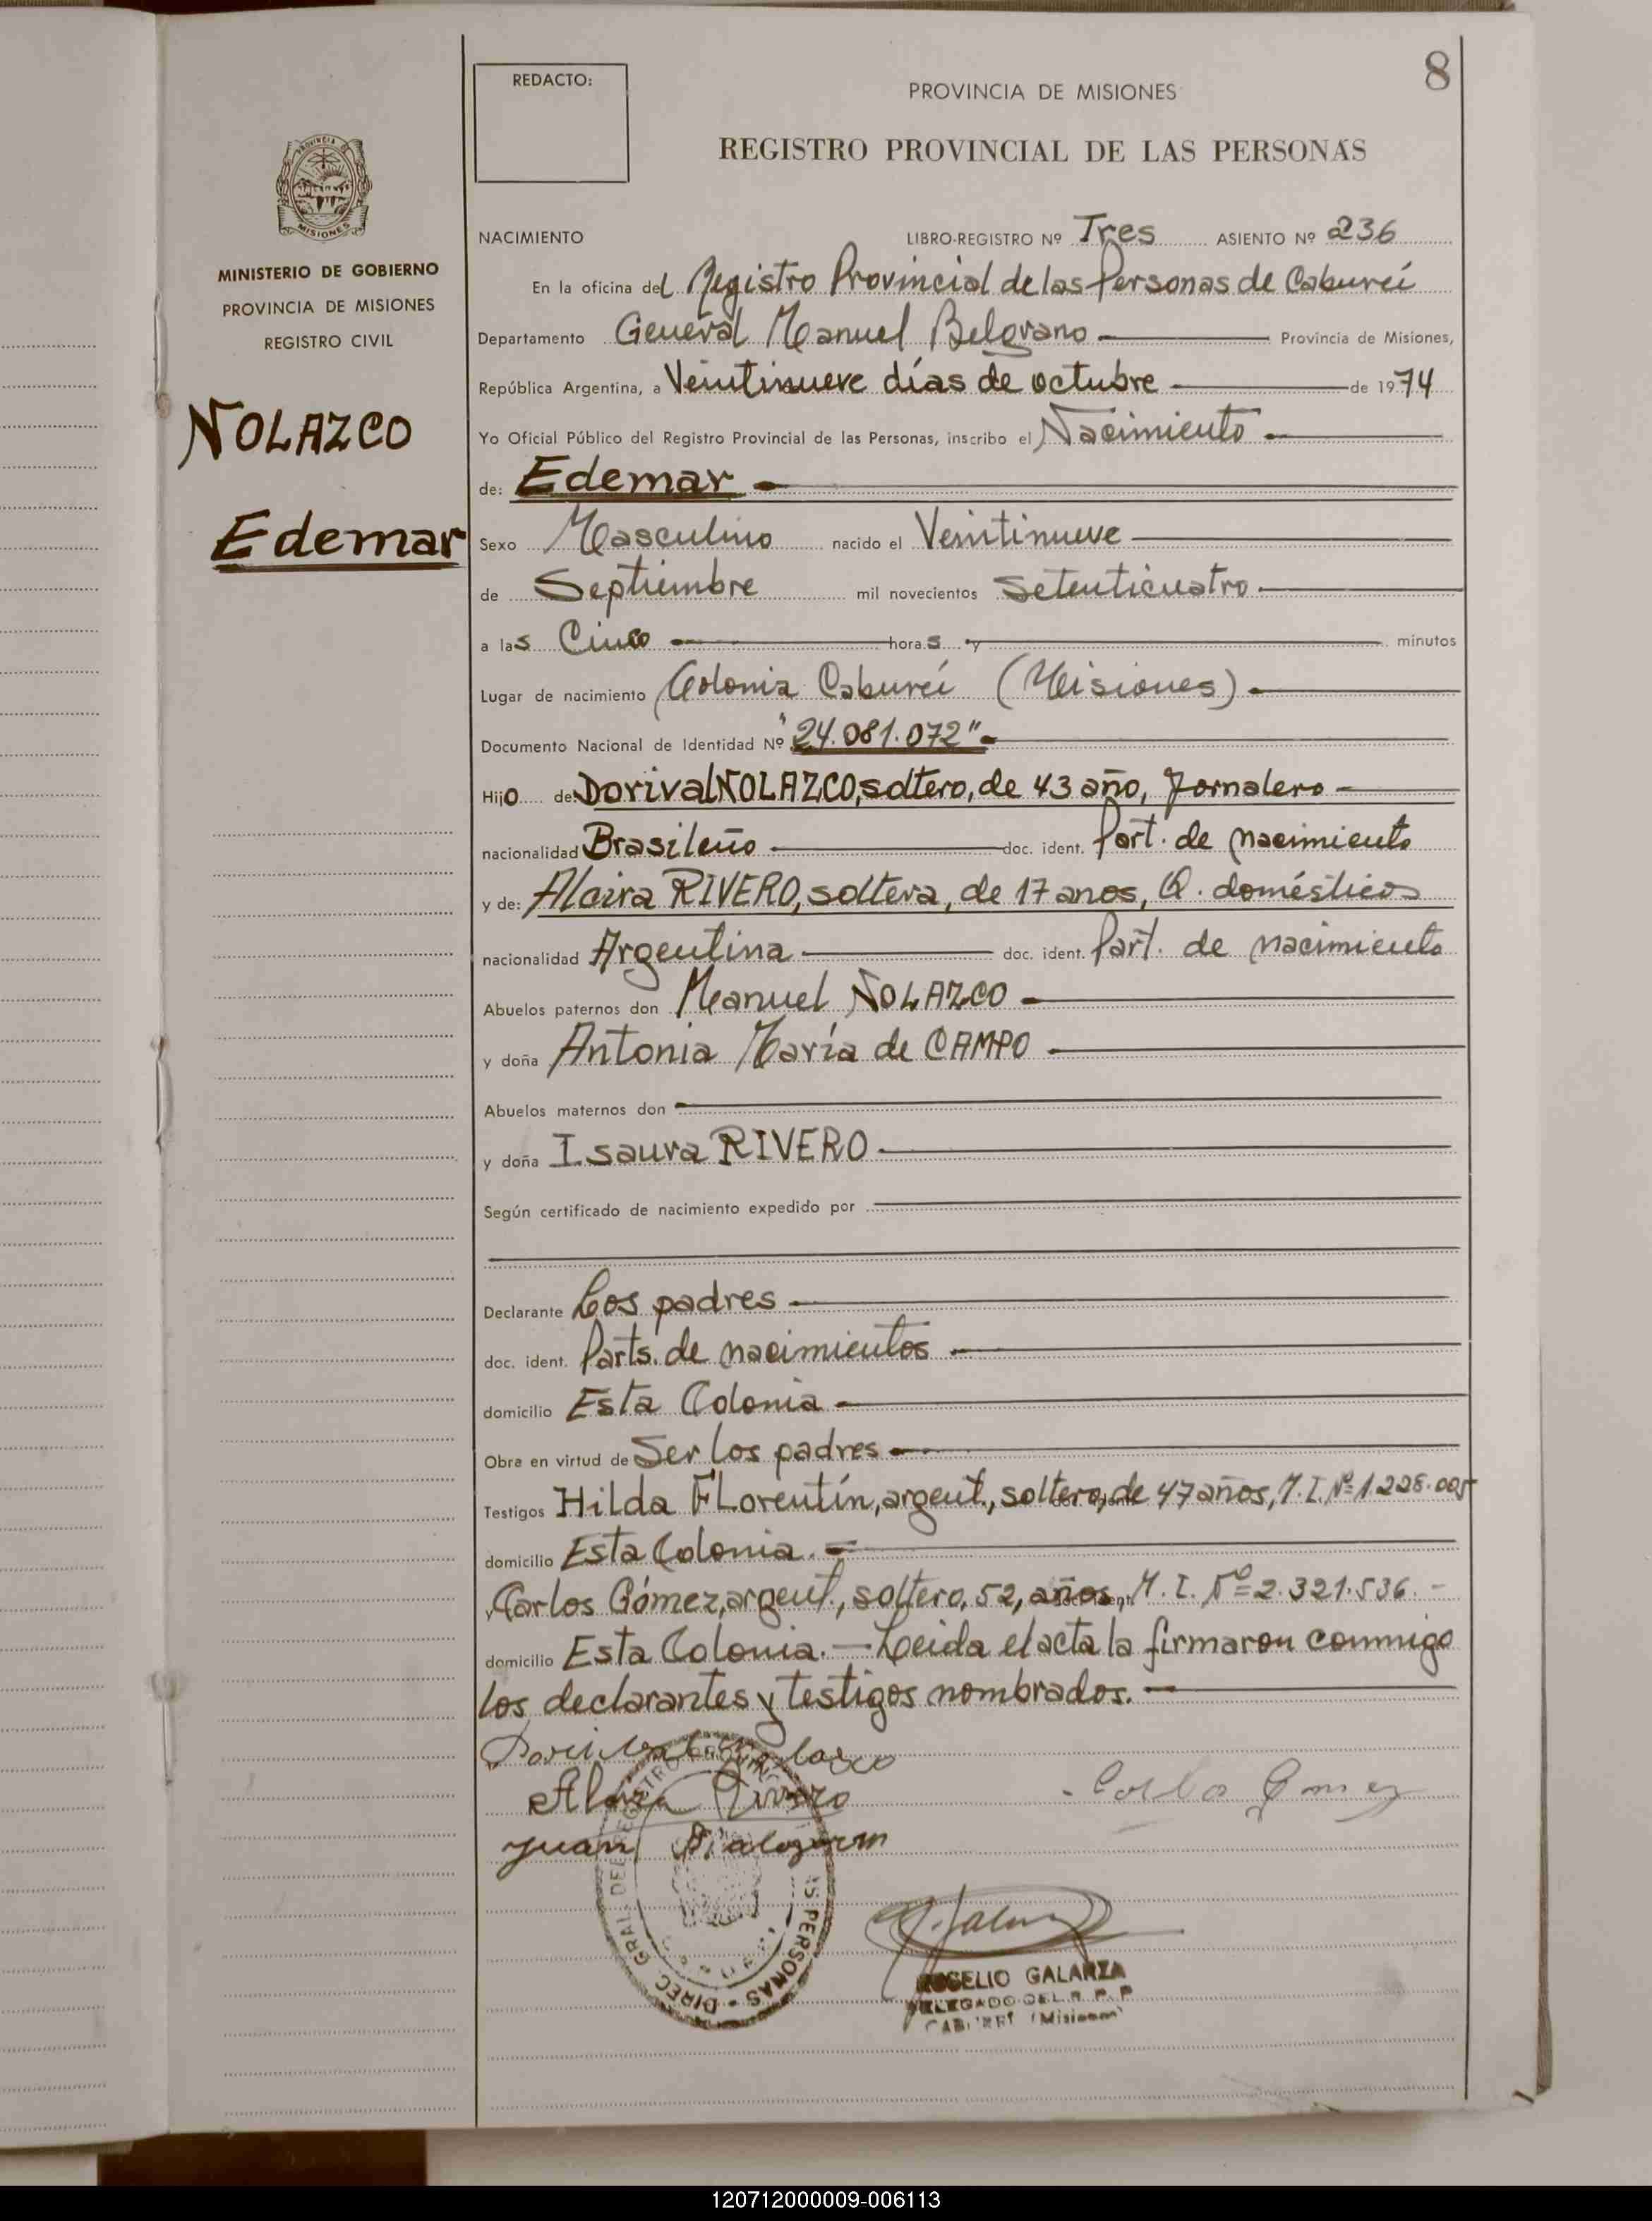 8
REDACTO:
PROVINCIA DE MISIONES
REGISTRO PROVINCIAL DE LAS PERSONAS
PROVINCIA DE
MISIONES
MINISTERIO DE GOBIERNO
PROVINCIA DE MISIONES
REGISTRO CIVIL
NOLAZCO
Edemar
NACIMIENTO LIBRO-REGISTRO Nº Tres ASIENTO Nº 236
En la oficina del Registro Provincial de las Personas de Cabureí
Departamento General Manuel Belgrano Provincia de Misiones,
República Argentina, a Veintinueve días de octubre de 1974
Yo Oficial Público del Registro Provincial de las Personas, inscribo el Nacimiento
de: Edemar
Sexo Masculino nacido el Veintinueve
de Septiembre mil novecientos setenticuatro
a las Cinco horas y minutos
Lugar de nacimiento Colonia Cabureí (Misiones)
Documento Nacional de Identidad Nº "24.081.072"
Hijo de Dorival NOLAZCO, soltero, de 43 año, Jornalero
nacionalidad Brasileño doc. ident. Part. de nacimiento
y de: Alcira RIVERO, soltera, de 17 anos, Q. domésticos
nacionalidad Argentina doc. ident. Part. de nacimiento
Abuelos paternos don Manuel NOLAZCO
y doña Antonia María de CAMPO
Abuelos maternos don
y doña Isaura RIVERO
Según certificado de nacimiento expedido por
Declarante Los padres
doc. ident. Parts. de nacimientos
domicilio Esta Colonia
Obra en virtud de Ser los padres
Testigos Hilda Florentín, argent., soltera, de 47 años, M.I. Nº 1.228.005
domicilio Esta Colonia.
y Carlos Gómez, argent., soltero, 52, años, M.I. Nº 2.321.536.-
domicilio Esta Colonia.- Leida el acta la firmaron conmigo
los declarantes y testigos nombrados.
Dorival Nolasco
Alcira Rivero
Carlos Gomez
Juan
DIREC. GRAL. DEL REGISTRO PERSONAS
ROGELIO GALARZA
DELEGADO DEL R. P. P.
CABUREI (Misiones)
120712000009-006113